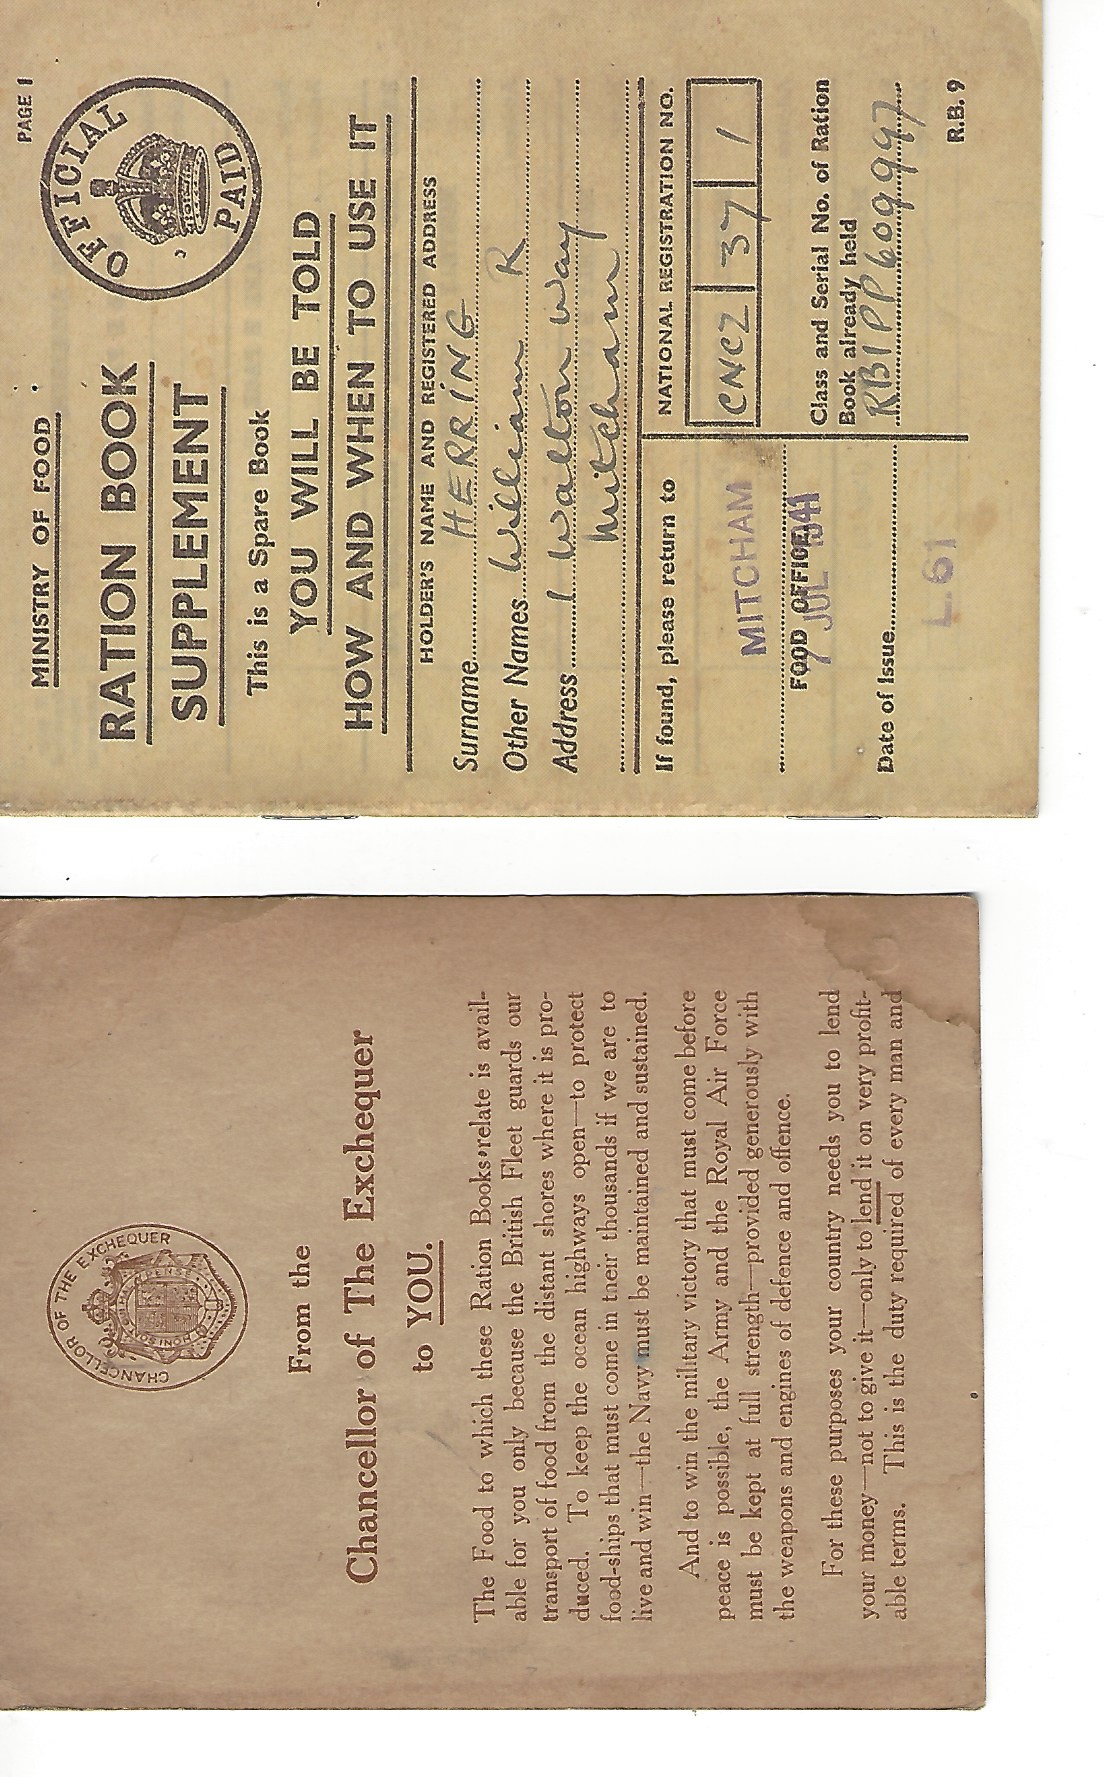 PAGE 1
MINISTRY OF FOOD
OFFICIAL PAID
RATION BOOK
SUPPLEMENT
This is a Spare Book
YOU WILL BE TOLD
HOW AND WHEN TO USE IT
HOLDER'S NAME AND REGISTERED ADDRESS
Surname HERRING
Other Names William R
Address 1 Walton Way
Mitcham
If found, please return to
MITCHAM
FOOD OFFICE
7 JUL 1941
Date of Issue
L.61
NATIONAL REGISTRATION NO.
CNCZ 37 1
Class and Serial No. of Ration
Book already held
RB1 PP 609997
R.B. 9
CHANCELLOR OF THE EXCHEQUER
From the
Chancellor of The Exchequer
to YOU.
The Food to which these Ration Books relate is avail-
able for you only because the British Fleet guards our
transport of food from the distant shores where it is pro-
duced. To keep the ocean highways open—to protect
food-ships that must come in their thousands if we are to
live and win—the Navy must be maintained and sustained.
And to win the military victory that must come before
peace is possible, the Army and the Royal Air Force
must be kept at full strength—provided generously with
the weapons and engines of defence and offence.
For these purposes your country needs you to lend
your money—not to give it—only to lend it on very profit-
able terms. This is the duty required of every man and